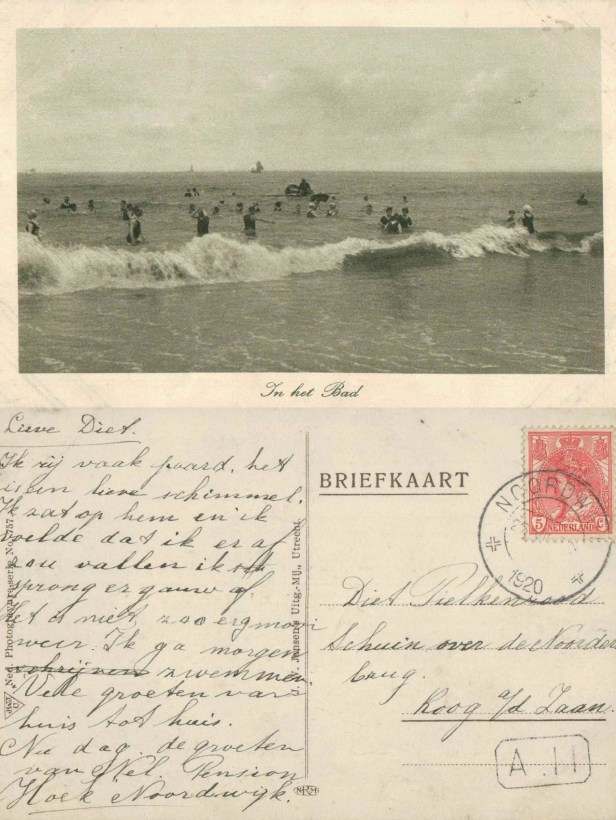 In het Bad
Lieve Diet.
Ik rij vaak paard, het
is een lieve schimmel.
Ik zat op hem en ik
voelde dat ik er af
zou vallen ik
sprong er gauw af.
Het is niet zoo erg mooi
weer. Ik ga morgen
schrijven zwemmen.
Vele groeten van
huis tot huis.
Nu dag de groeten
van Nel. Pension
Hoek Noordwijk.
Ned. Photogravureserie No. 757.
Jansen's Uitg.-Mij., Utrecht.
BRIEFKAART
5 C
NEDERLAND
NOORDW
1920
Diet Pielkenrood
Schuin over de Noorder
brug.
Koog a/d Zaan.
A.11